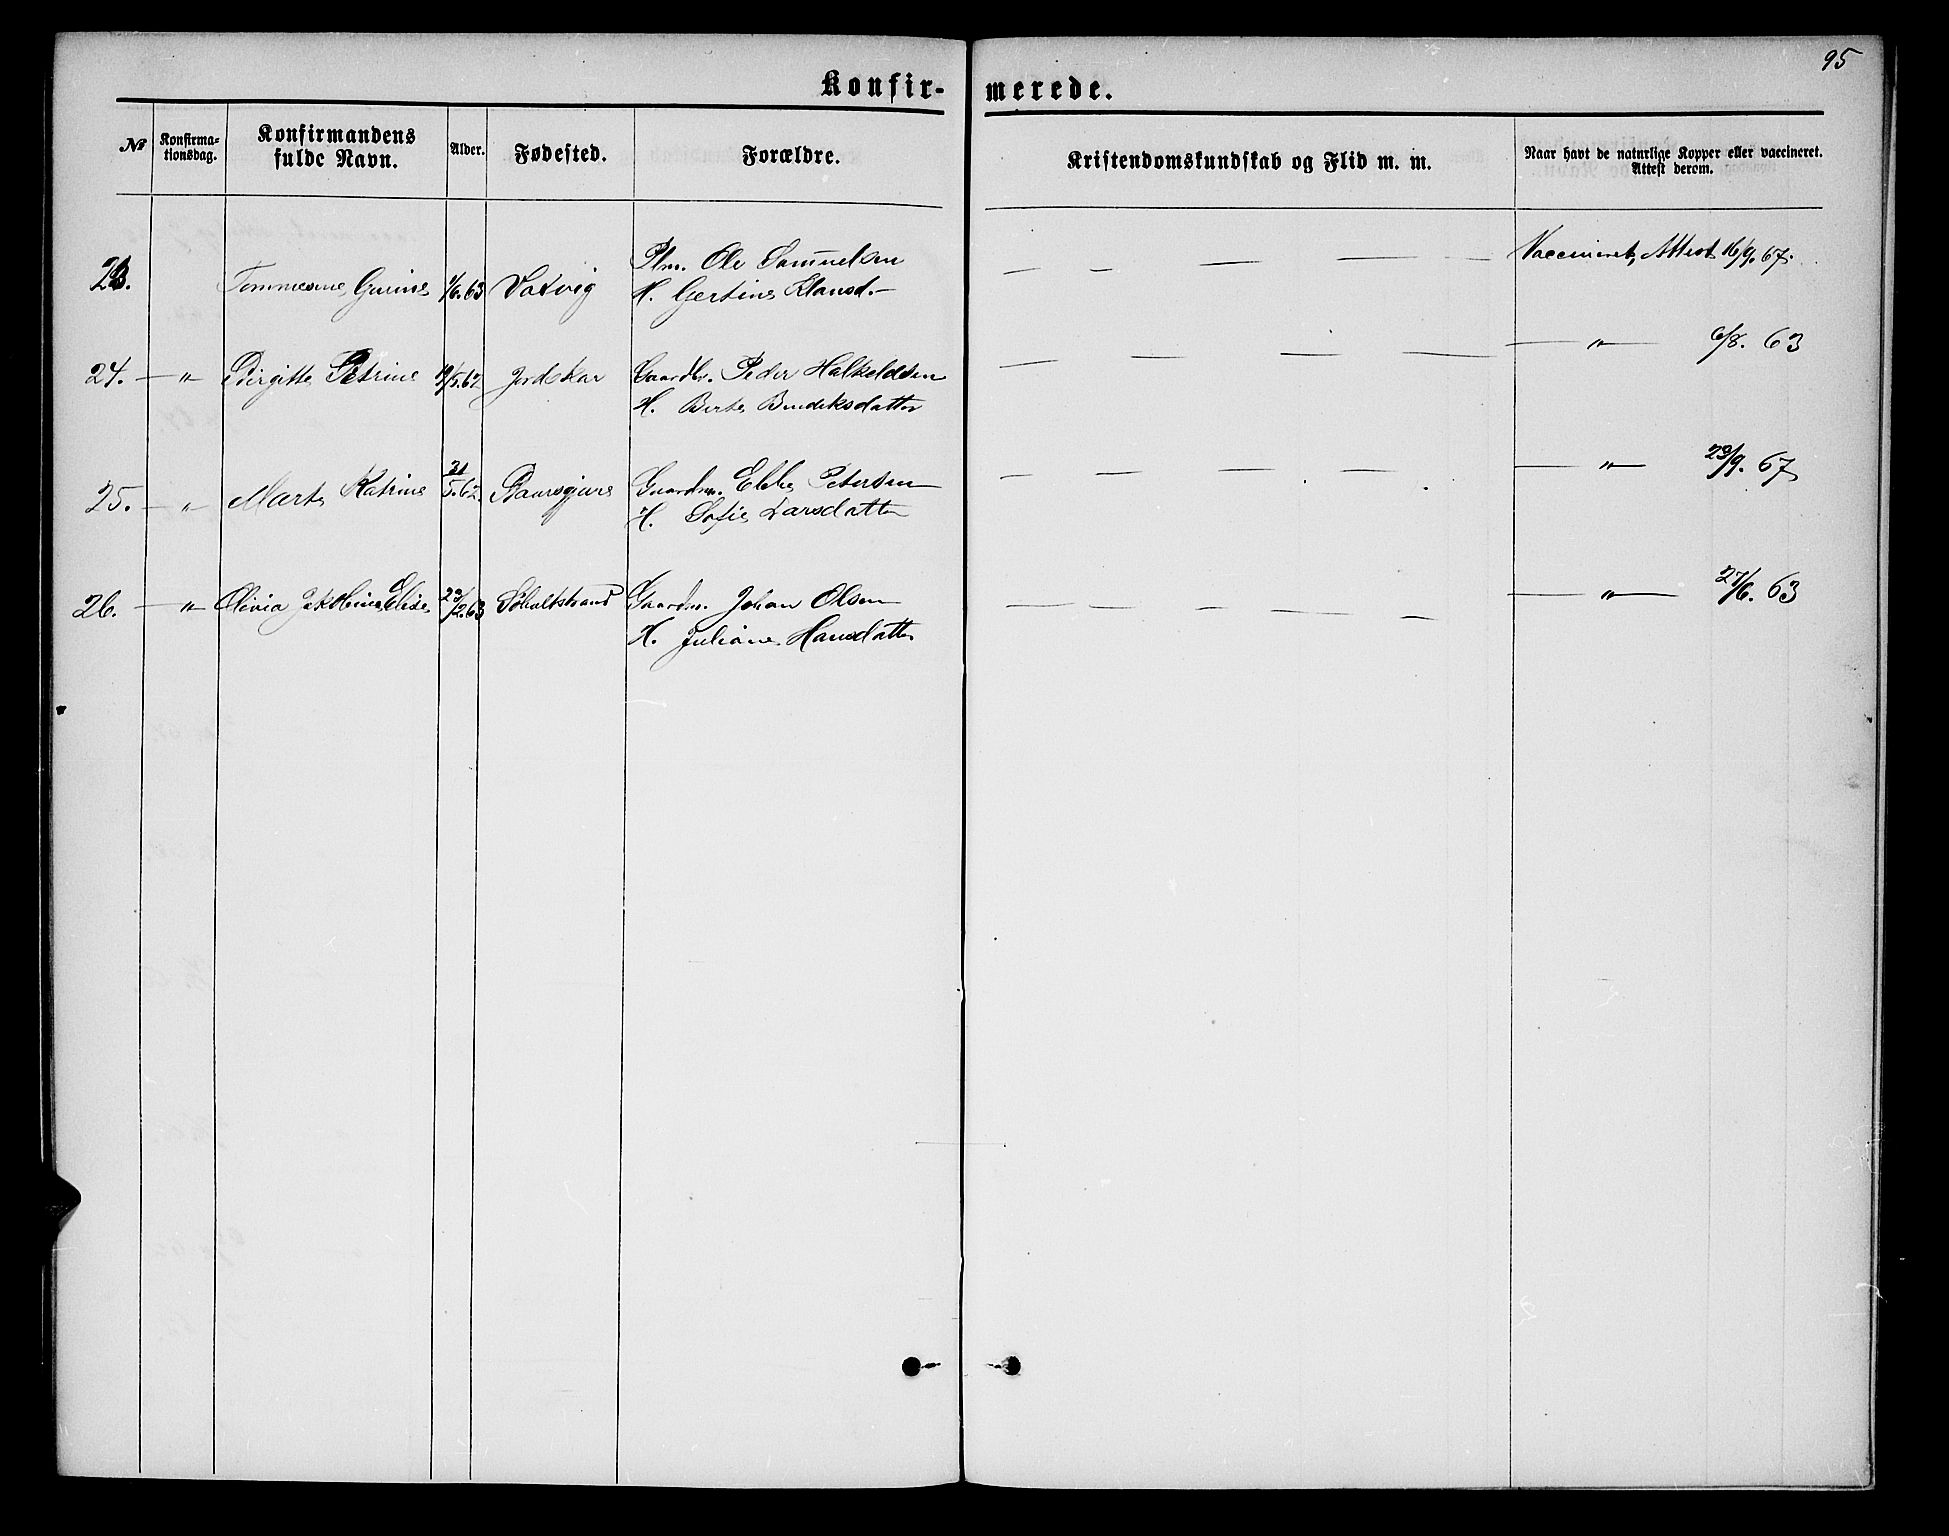 95
Konfirmerede.
No
Konfirma-
tionsdag.
Konfirmandens
fulde Navn.
Alder.
Fødested.
Forældre.
Kristendomskundskab og Flid m. m.
Naar havt de naturlige Kopper eller vaccineret.
Attest derom.
23. Tommesine Gurine 1/6.63 Vatvig
Plm. Ole Samuelsen
H. Gertine Klausd. —
Vaccineret, Attest 16/9. 67.
24. — „ Birgitte Petrine 19/5.62 Jordskar
Gaardbr. Peder Halkeldsen
H. Berte Bendiksdatter
— „ — 6/8. 63
25. — „ Marte Katrine 31/5.62
Gaardm. Ebbe Petersen
H. Sofie Larsdatter
— „ — 23/9. 67
26. — „ Olivia Jakobine Elise 23/2.63 Söholtstrand
Gaardm. Johan Olsen
H. Juliane Hansdatter
— „ — 27/6. 63